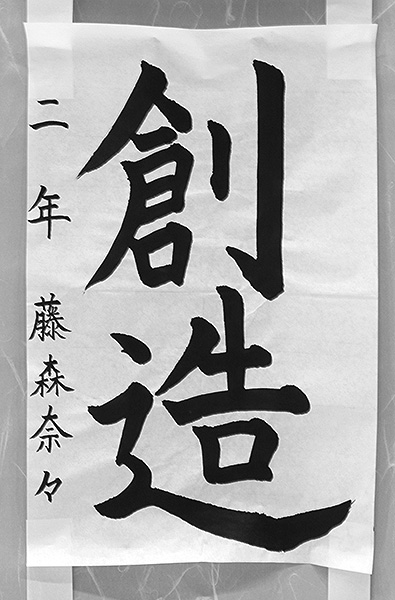 創造
二年 藤森奈々